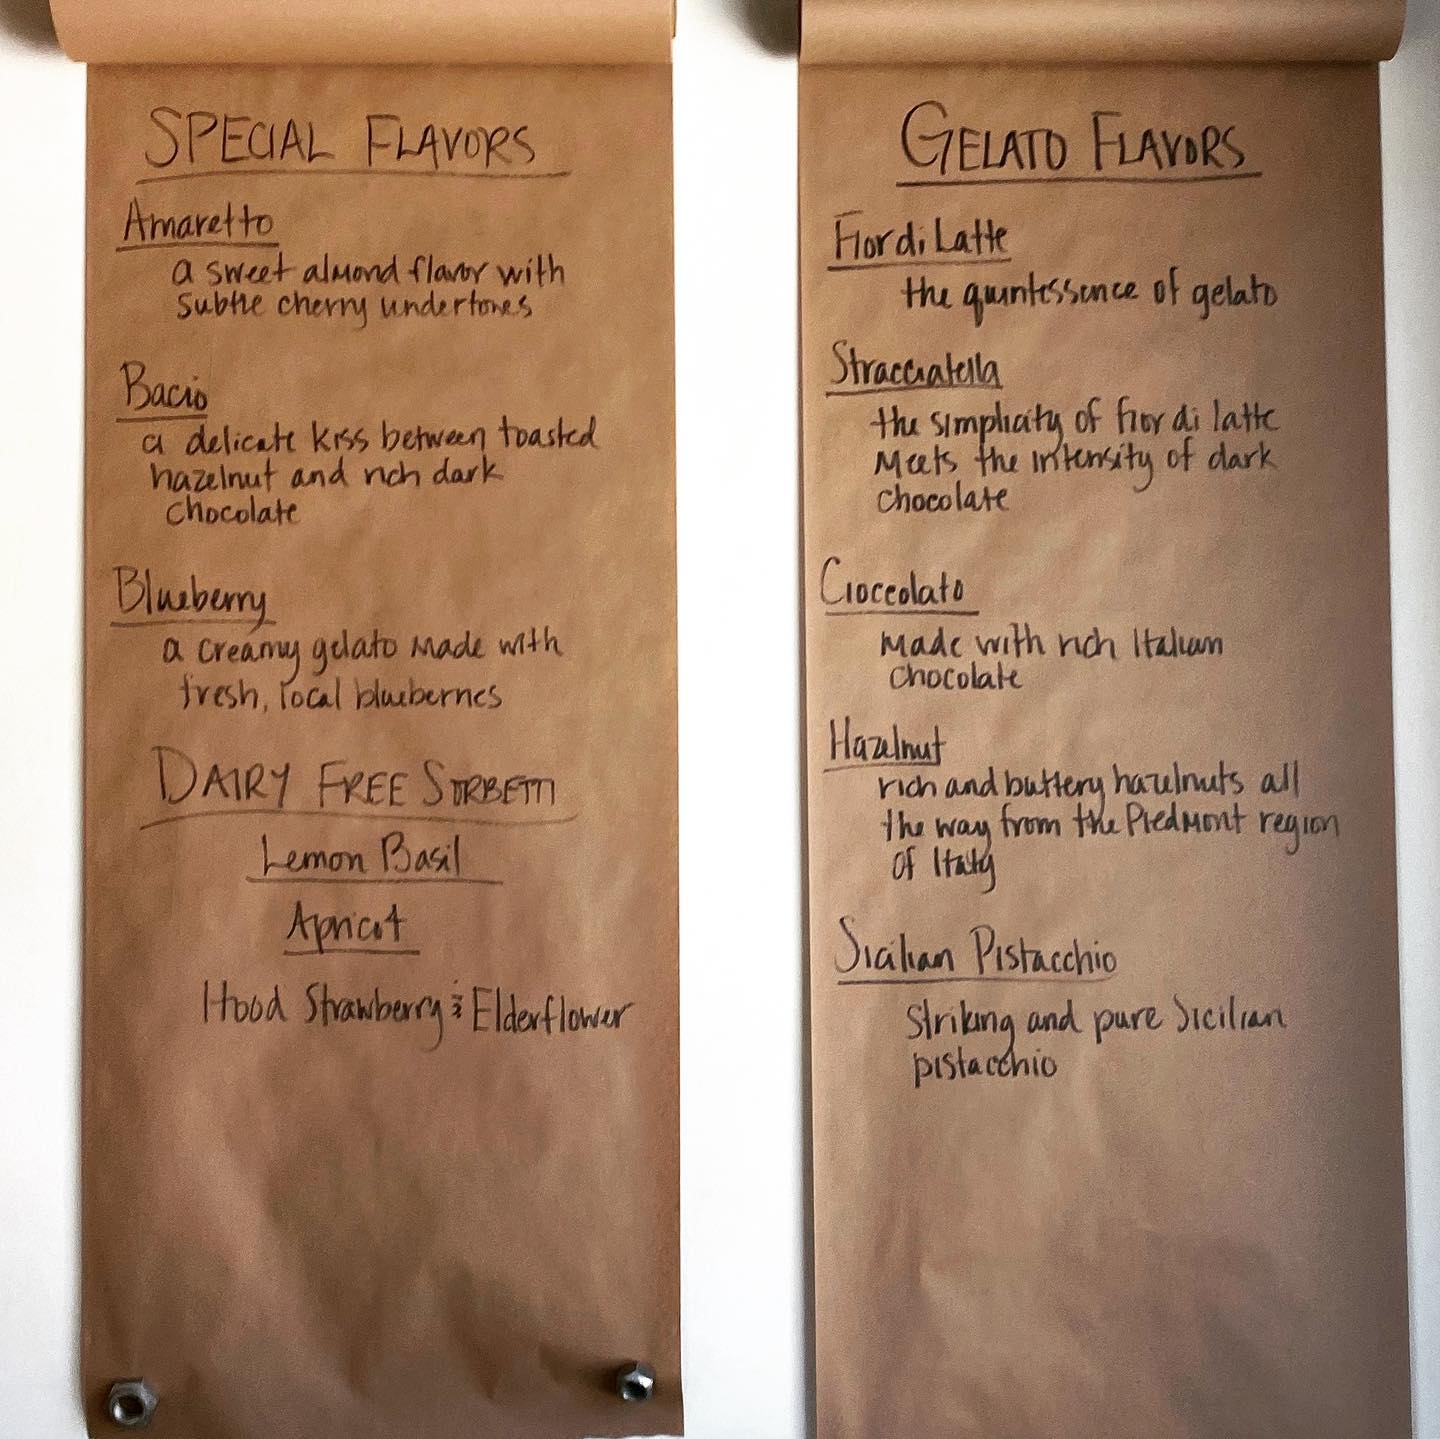 SPECIAL FLAVORS
Amaretto
a sweet almond flavor with
subtle cherry undertones
Bacio
a delicate kiss between toasted
hazelnut and rich dark
chocolate
Blueberry
a creamy gelato made with
fresh, local blueberries
DAIRY FREE SORBETTI
Lemon Basil
Apricot
Hood Strawberry & Elderflower
GELATO FLAVORS
Fior di Latte
the quintessence of gelato
Stracciatella
the simplicity of fior di latte
Meets the intensity of dark
chocolate
Cioccolato
Made with rich Italian
chocolate
Hazelnut
rich and buttery hazelnuts all
the way from the Piedmont region
of Italy
Sicilian Pistacchio
Striking and pure Sicilian
pistacchio